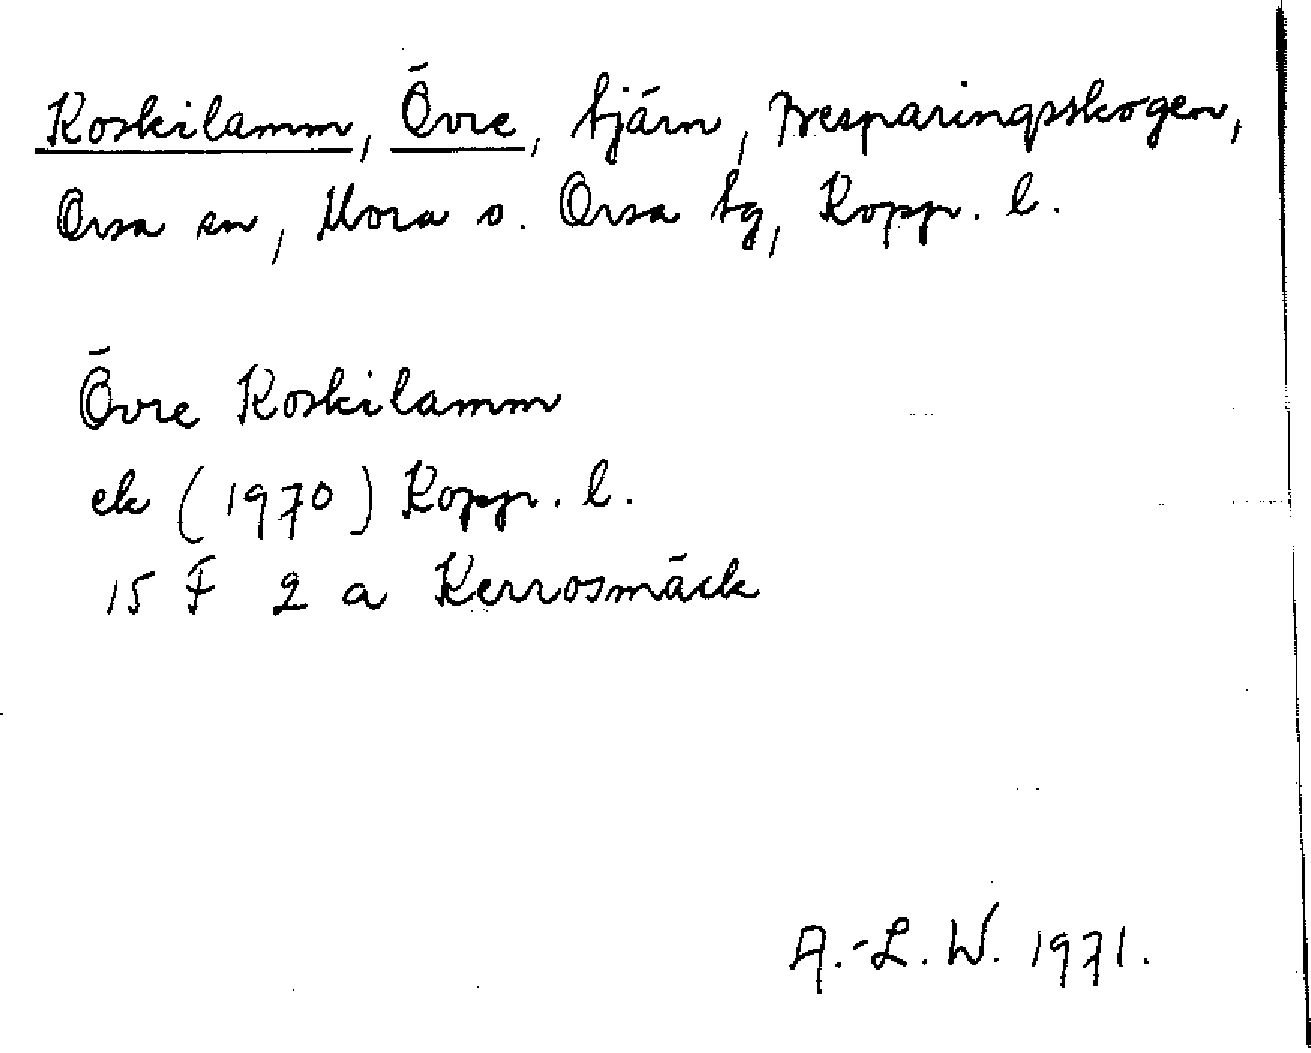 Koskilamm, Övre, tjärn, Besparingsskogen,
Orsa sn, Mora o. Orsa tg, Kopp. l.
Övre Koskilamm
ek (1970) Kopp. l.
15 F 2 a Kerrosmäck
A.-L. W. 1971.